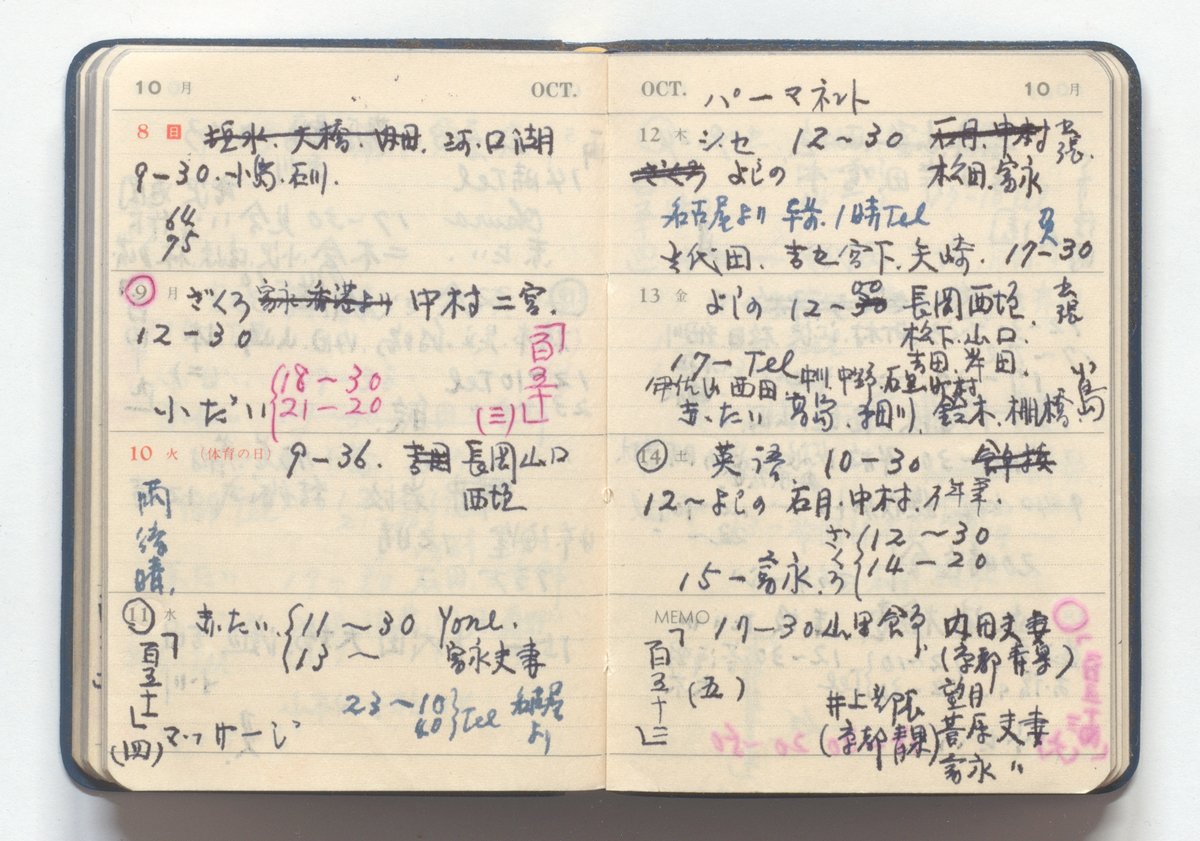 10月 OCT.
8 日 大橋. 内田. 河口湖
9-30. 小島. 石川.
64
95
9 月 ざくろ 家永 香港より 中村 二宮.
12-30
「百五十一」
小だい 18-30
21-20
(三)
10 火 (体育の日) 9-36. 吉田 長岡 山口
西垣
雨後晴.
11 水 赤だい. 11-30 Yone.
13- 家永夫妻
「百五十一」
23-10 Tel 名古屋
40 より
(四) マッサージ
OCT. 10月
パーマネント
12 木 シセ 12-30 石月. 中村 去張.
ざくろ よしの 松田. 家永
名古屋より 1時Tel
吉代田. 宮下. 矢崎. 17-30
13 金 よしの 12-30 00 長岡 西垣. 去張
松下. 山口
17-Tel 吉田. 岸田.
伊佐山 西田 中川. 中野. 石黒 町村 小島
赤だい 細川. 鈴木. 棚橋.
14 土 英語. 10-30
12-よしの 石月. 中村.
ざくろ 12-30
14-20
15-家永.
MEMO 17-30 山田 内田夫妻
(京都青果)
「百五十三」
(五)
望月
井上 隊 菅原夫妻
(京都青果) 家永 〃